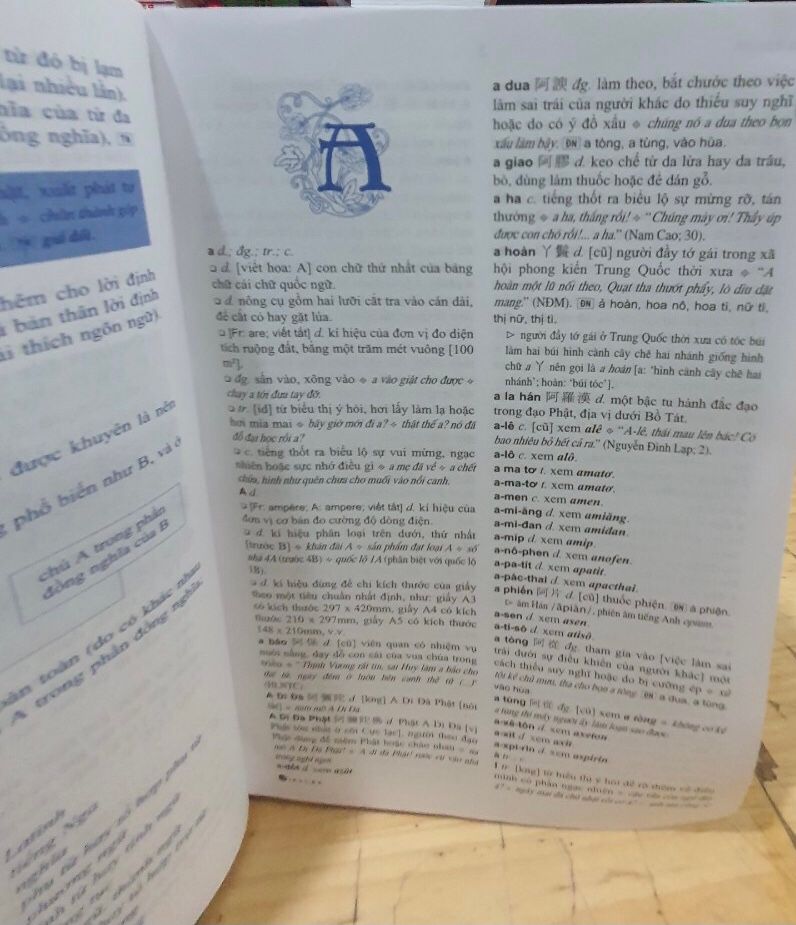 từ đó bị lạm
lại nhiều lần).
nghĩa của từ đa
đồng nghĩa),
xuất phát từ
chân thành góp
gửi đất.
thêm cho lời định
bản thân lời định
giải thích ngôn ngữ).
được khuyên là nên
phổ biến như B, và ở
chú A trong phần
đồng nghĩa của B
toàn toàn (do có khác nhau
A trong phần đồng nghĩa.
A
a d.; đg.; tr.; c.
d. [viết hoa: A] con chữ thứ nhất của bảng
chữ cái chữ quốc ngữ.
d. nông cụ gồm hai lưỡi cắt tra vào cán dài,
để cắt cỏ hay gặt lúa.
[Fr: are; viết tắt] d. kí hiệu của đơn vị đo diện
tích ruộng đất, bằng một trăm mét vuông [100
m²].
đg. sấn vào, xông vào ⋄ a vào giật cho được ⋄
chạy a tới đưa tay đỡ.
tr. [id] từ biểu thị ý hỏi, hơi lấy làm lạ hoặc
hơi mỉa mai ⋄ bây giờ mới đi a? ⋄ thật thế a? nó đã
đỗ đại học rồi a?
c. tiếng thốt ra biểu lộ sự vui mừng, ngạc
nhiên hoặc sực nhớ điều gì ⋄ a mẹ đã về ⋄ a chết
chửa, hình như quên chưa cho muối vào nồi canh.
A d.
[Fr: ampère; A: ampere; viết tắt] d. kí hiệu của
đơn vị cơ bản đo cường độ dòng điện.
d. kí hiệu phân loại trên dưới, thứ nhất
[trước B] ⋄ khán đài A ⋄ sản phẩm đạt loại A ⋄ số
nhà 4A (trước 4B) ⋄ quốc lộ 1A (phân biệt với quốc lộ
1B).
d. kí hiệu dùng để chỉ kích thước của giấy
theo một tiêu chuẩn nhất định, như: giấy A3
có kích thước 297 x 420mm, giấy A4 có kích
thước 210 x 297mm, giấy A5 có kích thước
148 x 210mm, v.v.
a bảo 阿保 d. [cũ] viên quan có nhiệm vụ
nuôi nấng, dạy dỗ con cái của vua chúa trong
triều ⋄ "Thịnh Vương rất tin, sai Huy làm a bảo cho
thế tử, ngày đêm ở luôn bên cạnh thế tử (...)"
(HLNTC).
A Di Đà d. [kng] A Di Đà Phật [nói
tắt] ⋄ nam mô A Di Đà
A Di Đà Phật d. Phật A Di Đà [vị
Phật lớn nhất ở cõi Cực lạc], người theo đạo
Phật dùng để niệm Phật hoặc chào nhau ⋄ na
mô A Di Đà Phật! ⋄ A di đà Phật! rước cụ vào nhà
trong nghỉ ngơi
xem azôt
a dua 阿諛 đg. làm theo, bắt chước theo việc
làm sai trái của người khác do thiếu suy nghĩ
hoặc do có ý đồ xấu ⋄ chúng nó a dua theo bọn
xấu làm bậy. ĐN a tòng, a tùng, vào hùa.
a giao 阿膠 d. keo chế từ da lừa hay da trâu,
bò, dùng làm thuốc hoặc để dán gỗ.
a ha c. tiếng thốt ra biểu lộ sự mừng rỡ, tán
thưởng ⋄ a ha, thắng rồi! ⋄ "Chúng mày ơi! Thầy úp
được con chó rồi!... a ha." (Nam Cao; 30).
a hoàn 丫鬟 d. [cũ] người đầy tớ gái trong xã
hội phong kiến Trung Quốc thời xưa ⋄ "A
hoàn một lũ nối theo, Quạt tha thướt phẩy, lò dìu dặt
mang." (NĐM). ĐN ả hoàn, hoa nô, hoa tì, nữ tì,
thị nữ, thị tì.
▷ người đầy tớ gái ở Trung Quốc thời xưa có tóc búi
làm hai búi hình cành cây chẽ hai nhánh giống hình
chữ a 丫 nên gọi là a hoàn [a: 'hình cành cây chẽ hai
nhánh'; hoàn: 'búi tóc'].
a la hán 阿羅漢 d. một bậc tu hành đắc đạo
trong đạo Phật, địa vị dưới Bồ Tát.
a-lê c. [cũ] xem alê ⋄ "A-lê, thái mau lên bác! Có
bao nhiêu bỏ hết cả ra." (Nguyễn Đình Lạp; 2).
a-lô c. xem alô.
a ma tơ t. xem amatơ.
a-ma-tơ t. xem amatơ.
a-men c. xem amen.
a-mi-ăng d. xem amiăng.
a-mi-đan d. xem amiđan.
a-mip d. xem amip.
a-nô-phen d. xem anofen.
a-pa-tít d. xem apatit.
a-pác-thai d. xem apacthai.
a phiến 阿片 d. [cũ] thuốc phiện. ĐN ả phiện.
▷ âm Hán /āpiàn/, phiên âm tiếng Anh opium.
a-sen d. xem asen.
a-ti-sô d. xem atisô.
a tòng 阿從 đg. tham gia vào [việc làm sai
trái dưới sự điều khiển của người khác] một
cách thiếu suy nghĩ hoặc do bị cưỡng ép ⋄ xử
tội kẻ chủ mưu, tha cho bọn a tòng. ĐN a dua, a tùng,
vào hùa.
a tùng 阿從 đg. [cũ] xem a tòng ⋄ không có kẻ
a tùng thì mấy người ấy làm loạn sao được.
a-xê-tôn d. xem axeton
a-xít d. xem axit
a-xpi-rin d. xem aspirin.
à tr.; c.
tr. [kng] từ biểu thị ý hỏi để rõ thêm về điều
mình có phần ngạc nhiên